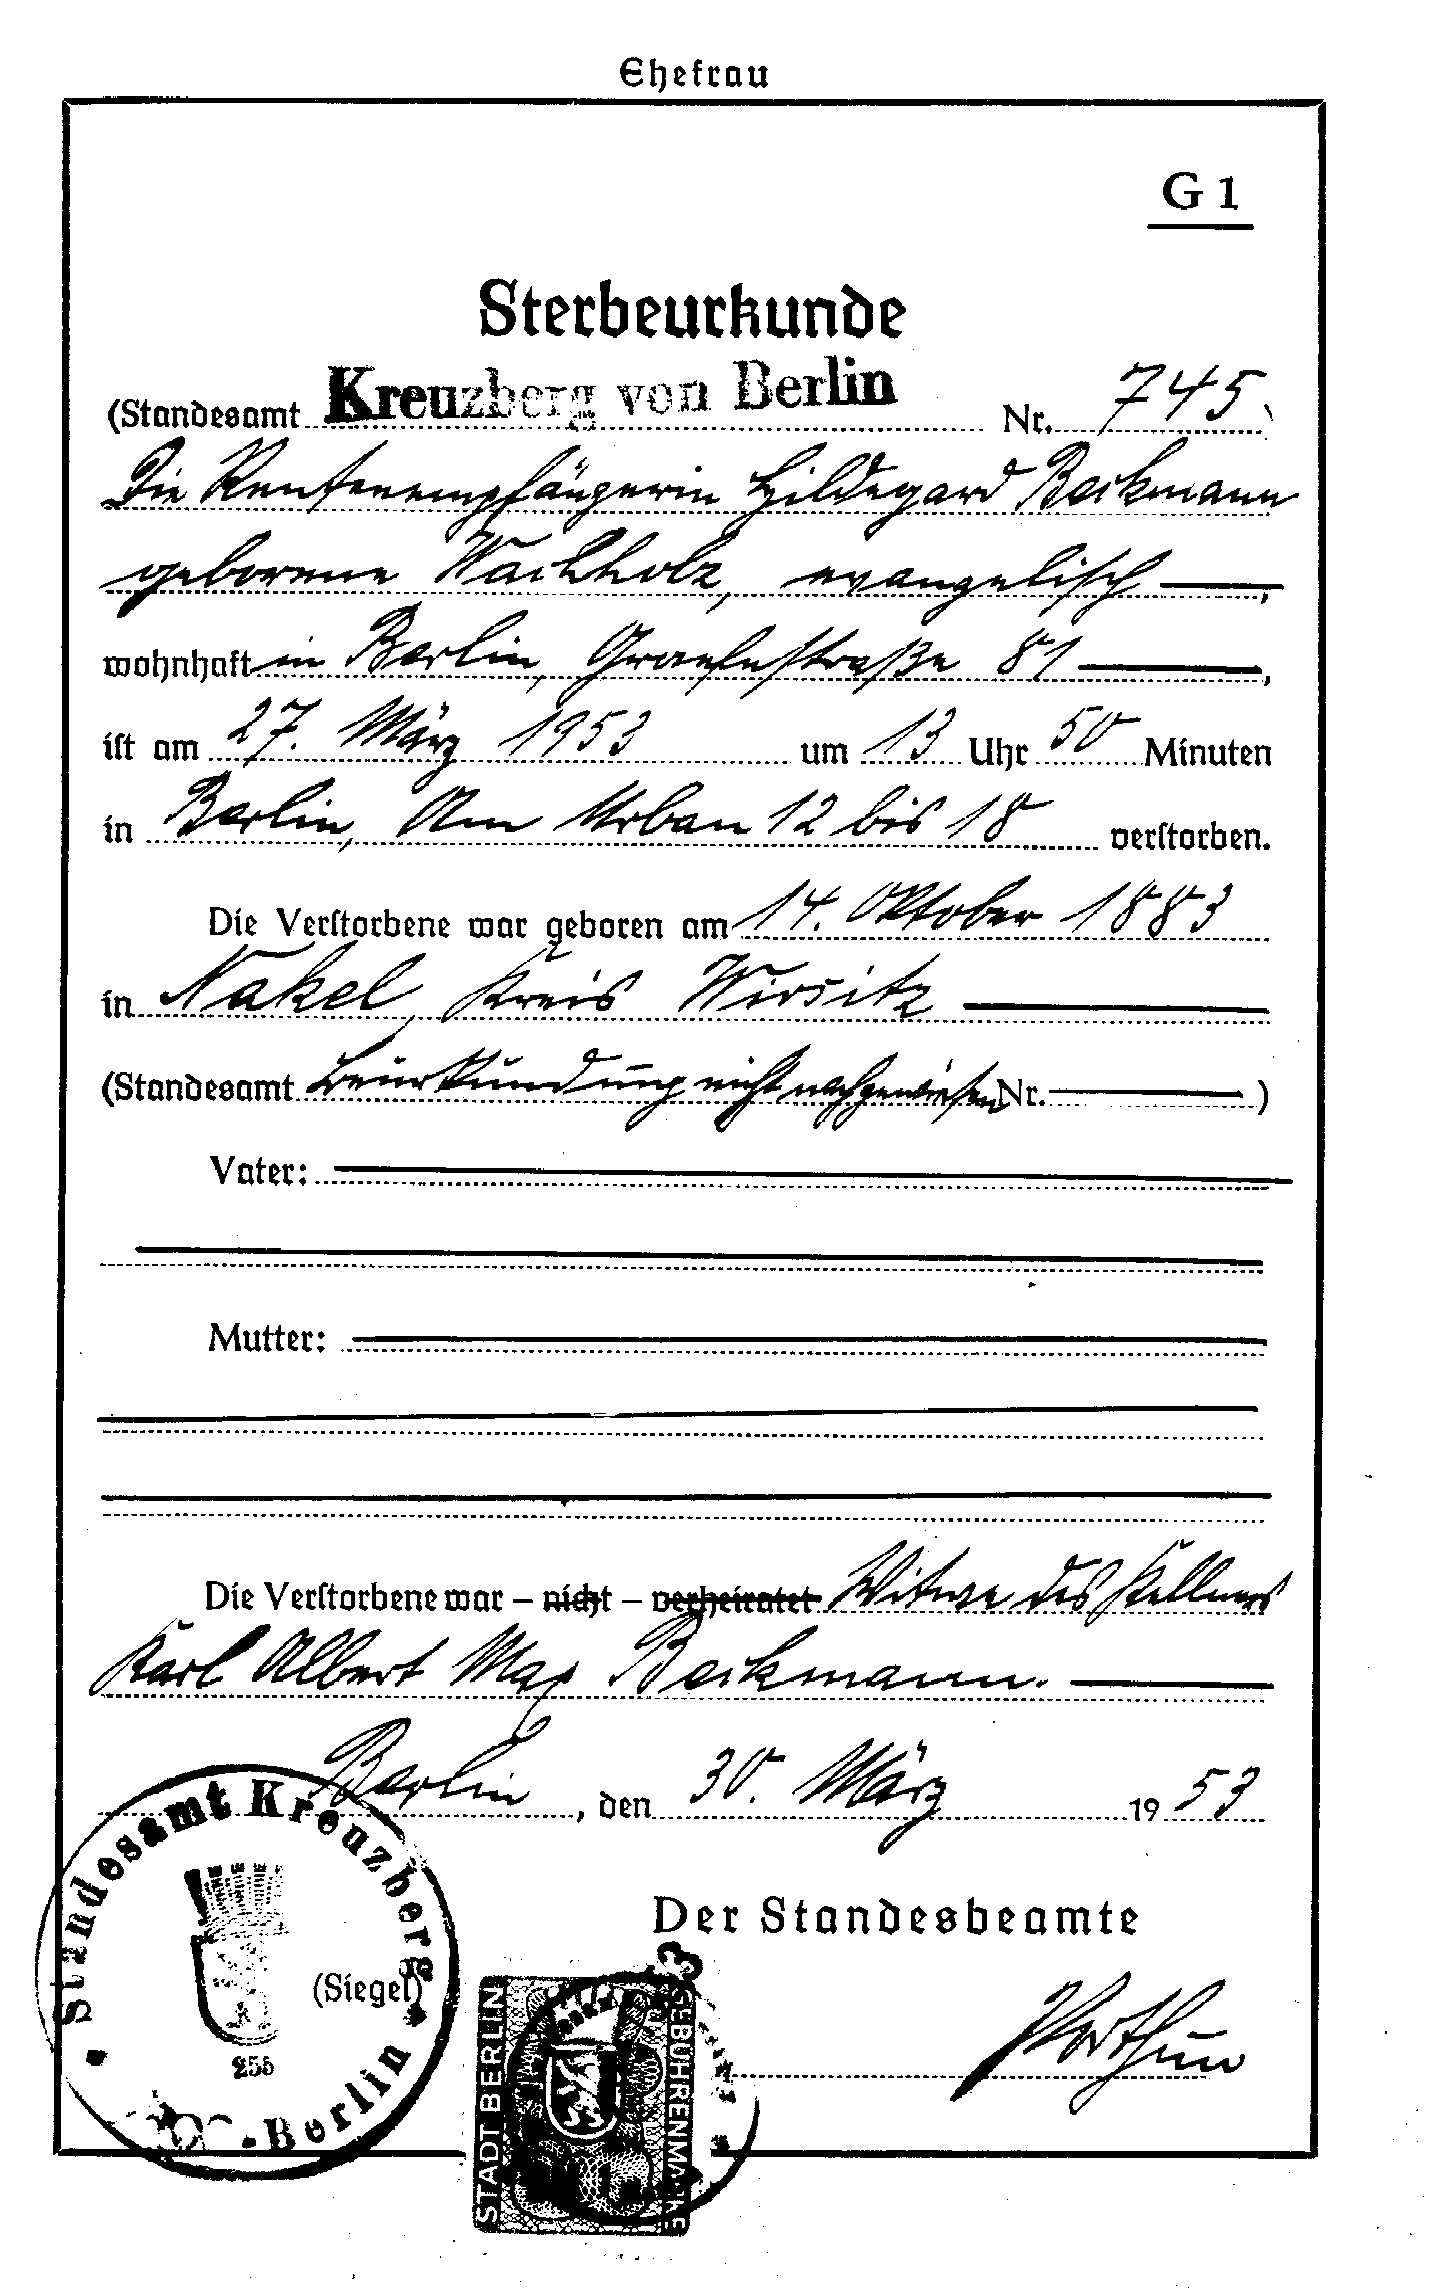 Ehefrau
G 1
Sterbeurkunde
(Standesamt Kreuzberg von Berlin Nr. 745.
Die Rentenempfängerin Hildegard Beckmann
geborene Wachholz, evangelisch
wohnhaft in Berlin, Graefestraße 81,
ist am 27. März 1953 um 13 Uhr 50 Minuten
in Berlin, Am Urban 12 bis 18 verstorben.
Die Verstorbene war geboren am 14. Oktober 1883
in Nakel, Kreis Wirsitz
(Standesamt Beurkundung nicht nachgewiesen Nr. )
Vater:
Mutter:
Die Verstorbene war – nicht – verheiratet Witwe des Kellners
Karl Albert Max Beckmann.
Berlin, den 30. März 1953
Der Standesbeamte
(Siegel)
Standesamt Kreuzberg
255
Berlin
STADT BERLIN
GEBÜHRENMARKE